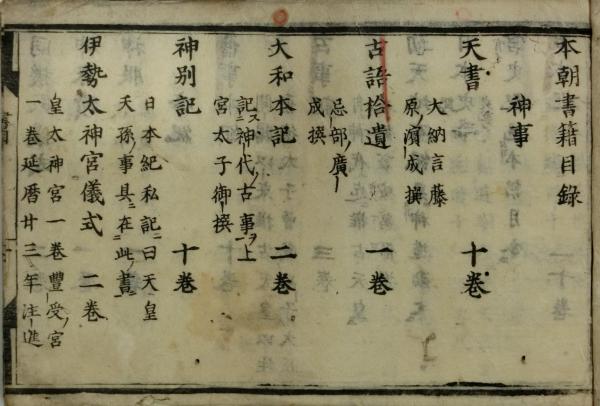 本朝書籍目錄
神事
天書　十卷
大納言藤
原ノ濱成撰
古語拾遺　一卷
忌部ノ廣
成撰
大和本記　二卷
記ス神代ノ古事ヲ上
宮太子御撰
神別記　十卷
日本紀私記ニ曰天皇
天孫ノ事具ニ在此ノ書ニ
伊勢太神宮儀式　二卷
皇太神宮一卷豐受ノ宮
一卷延曆廿三年注進